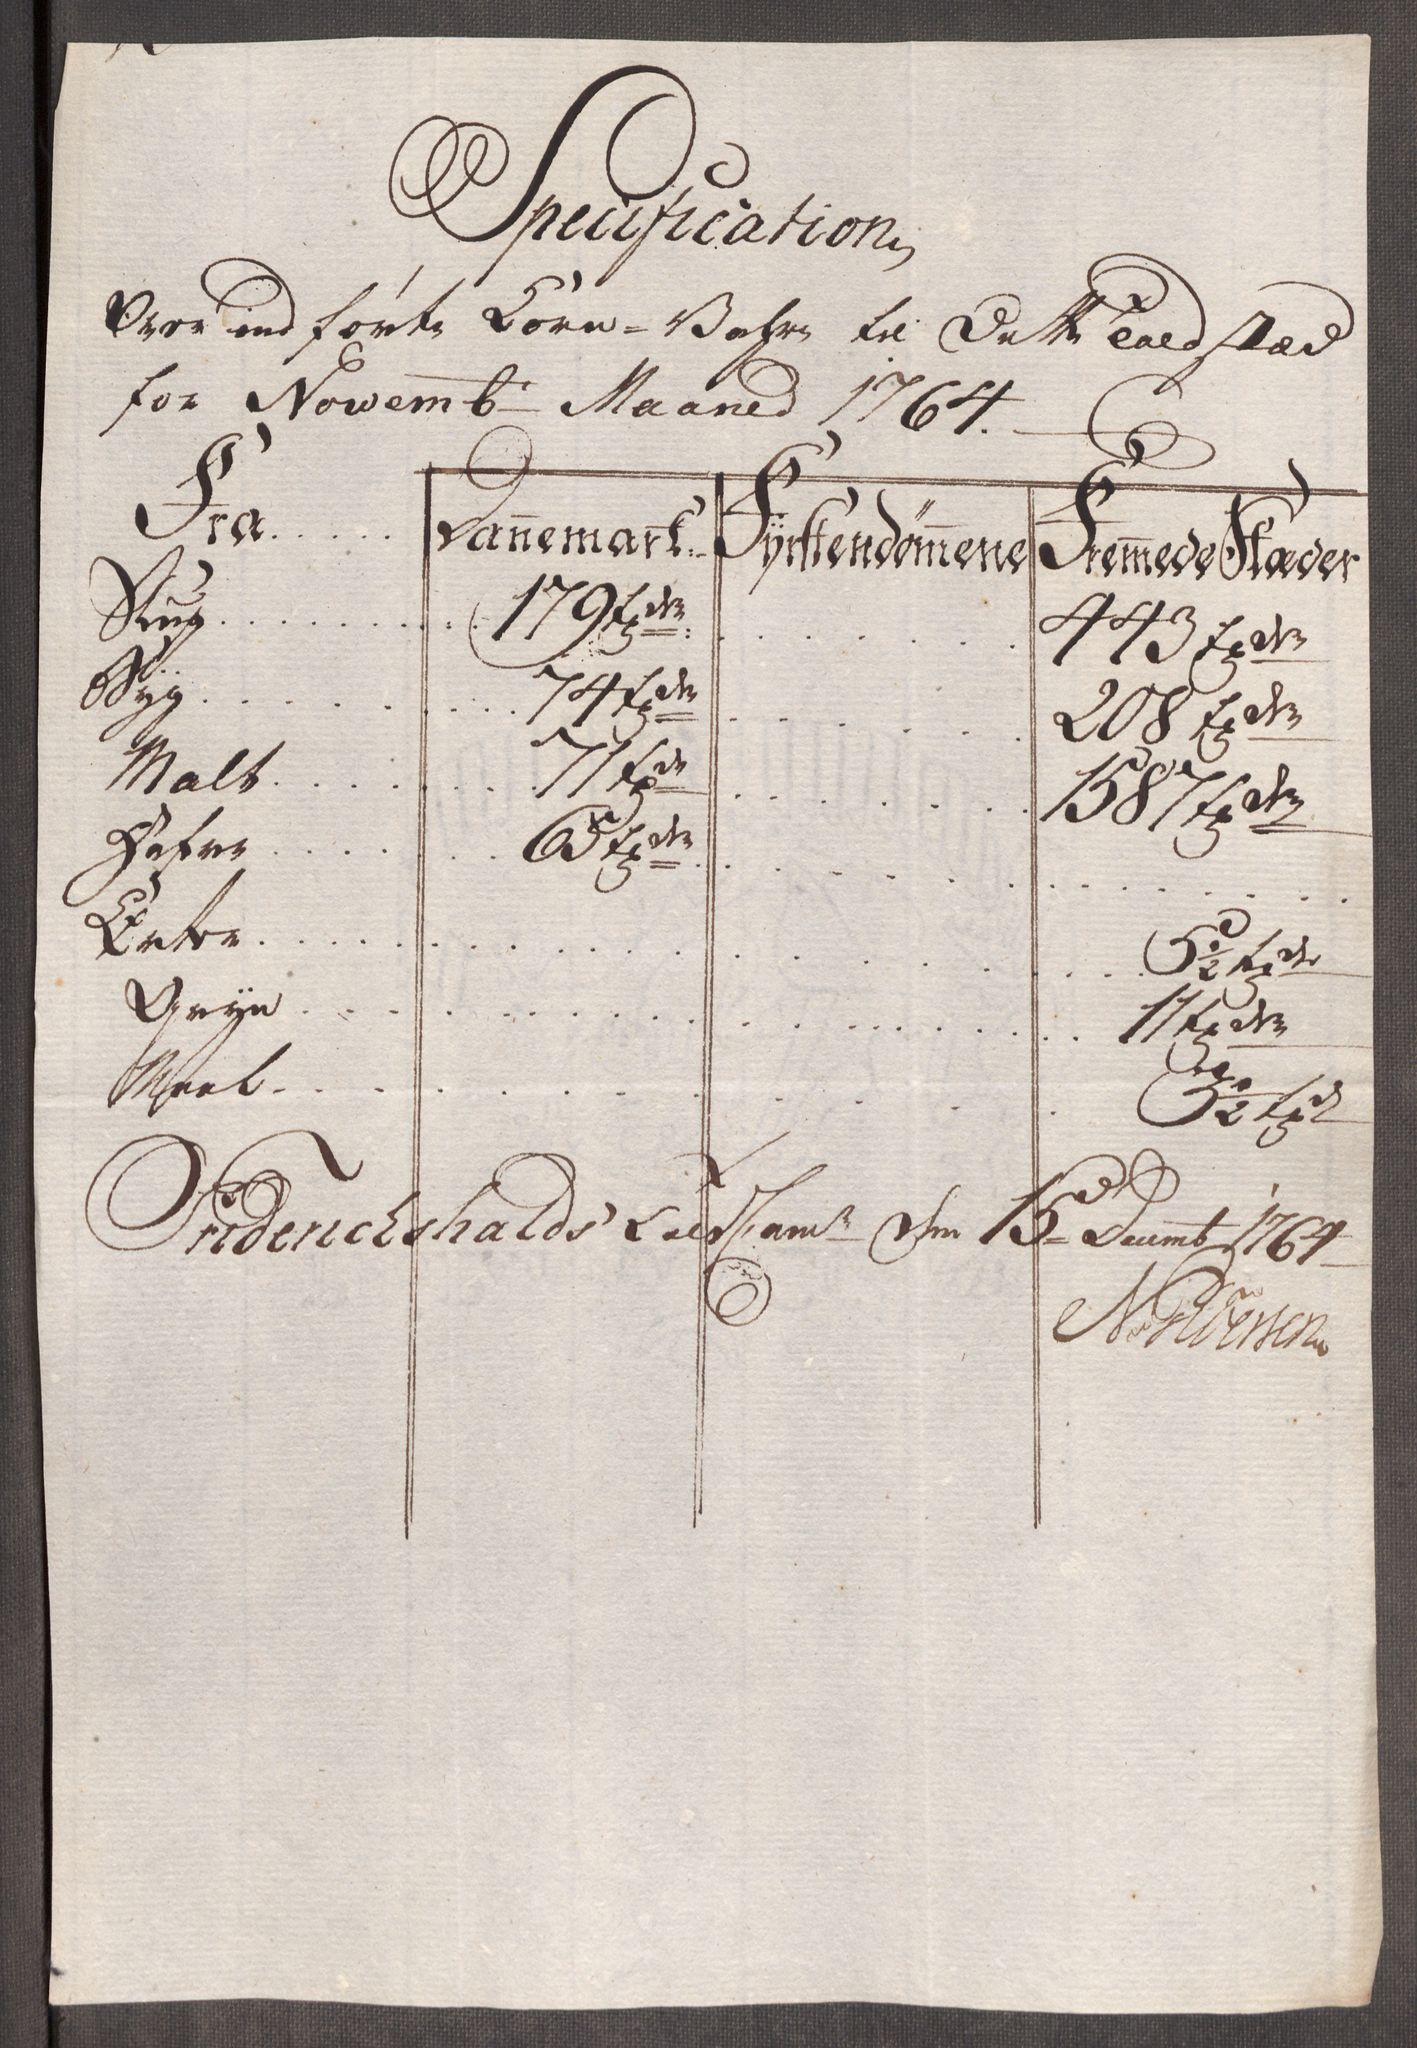 Specification
Over ind förte Korn-Vahre til Dette Toldstæd
for Novembr Maaned 1764.
Fra..... Dannemark. Fyrstendömmene Fremmede Stæder
Rug......... 179 Tdr. ....... 443 Tdr
Byg......... 74 Tdr ...... 208 Tdr
Malt......... 71 Tdr ....... 1587 Tdr
Hafre....... 65 Tdr .............
Erter............... 5½ Tdr
Gryn............... 11 Tdr
Meel............... 3½ Td
Friderichshalds Told Kamr den 15 Decembr 1764